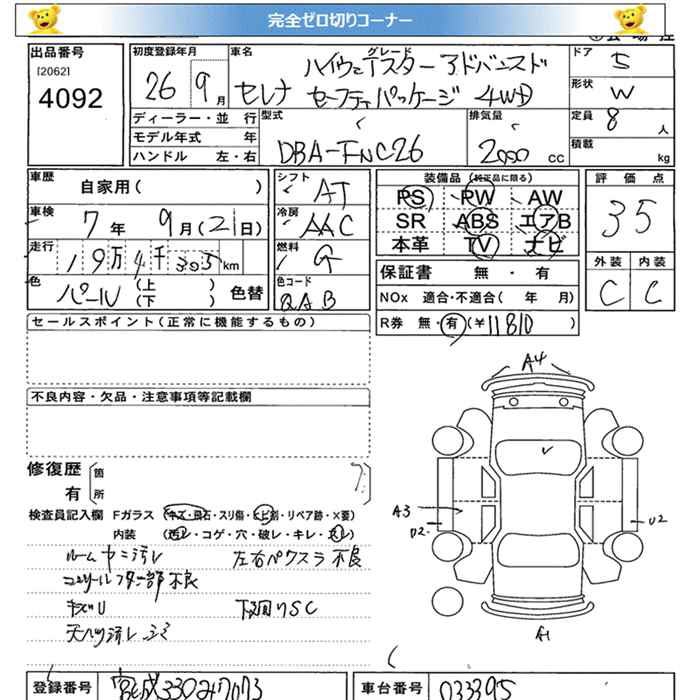 完全ゼロ切りコーナー
出品番号
[2062]
4092
初度登録年月
26 9月
車名
グレード
セレナ
ハイウェイスター アドバンスド
セーフティパッケージ 4WD
ドア
5
形状
W
定員
8人
積載
kg
ディーラー・並 行
モデル年式 年
ハンドル 左・右
型式
DBA-FNC26
排気量
2000 cc
車歴
自家用( )
車検
7年 9月(21日)
走行
19万4千305km
色
パール (上)(下) 色替
シフト
AT
冷房
AAC
燃料
G
色コード
QAB
装備品 (純正品に限る)
PS PW AW
SR ABS エアB
本革 TV ナビ
保証書 無・有
NOx 適合・不適合( 年 月)
R券 無・有(¥11810)
評価点
35
外装 内装
C C
セールスポイント(正常に機能するもの)
不良内容・欠品・注意事項等記載欄
修復歴
有
箇所
検査員記入欄 Fガラス (キズ・飛石・スリ傷・ヒビ割・リペア跡・×要)
内装 (汚レ・コゲ・穴・破レ・キレ・スレ)
ルームヤニ汚レ 左右Pワスラ不良
下廻りSC
A4
A3
U2
U2
A1
登録番号
宮城330
車台番号
033395